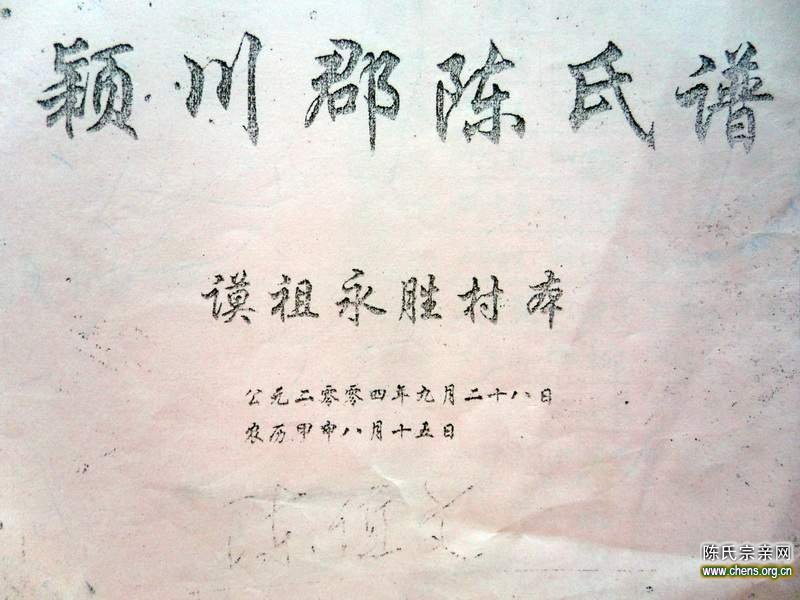 颖川郡陈氏谱
谟祖永胜村本
公元二零零四年九月二十八日
农历甲申八月十五日
陈氏宗亲网
www.chens.org.cn